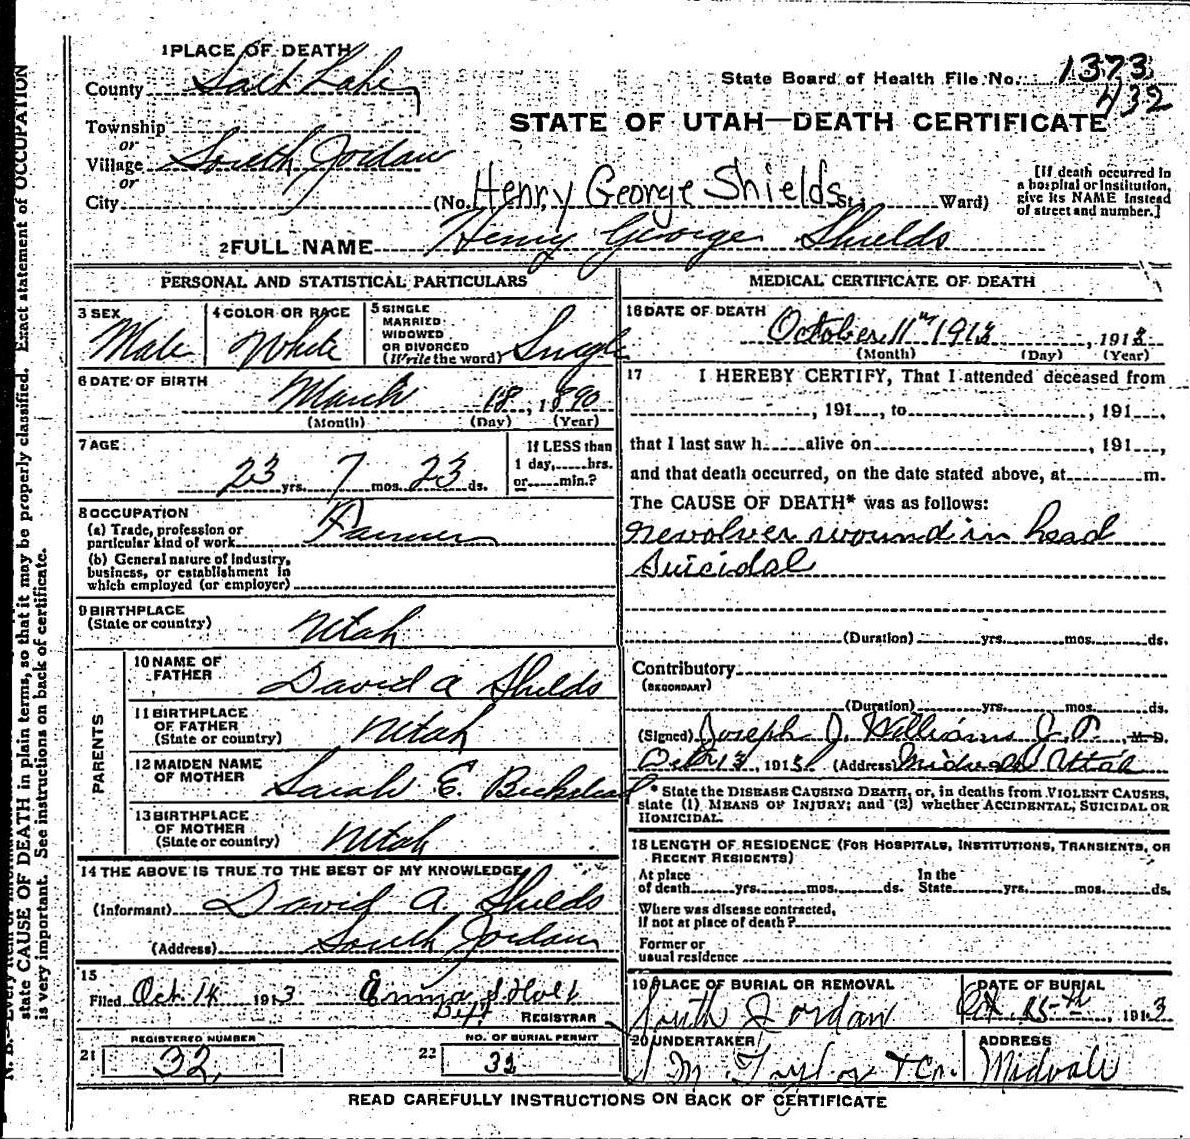 1 PLACE OF DEATH
County Salt Lake
State Board of Health File No. 1373
432
Township
or
Village South Jordan
or
City
STATE OF UTAH—DEATH CERTIFICATE
(No. Henry George Shields St., Ward)
[If death occurred in a hospital or institution, give its NAME instead of street and number.]
2 FULL NAME Henry George Shields
PERSONAL AND STATISTICAL PARTICULARS
3 SEX
Male
4 COLOR OR RACE
White
5 SINGLE
MARRIED
WIDOWED
OR DIVORCED
(Write the word) Single
6 DATE OF BIRTH
March 18, 1890
(Month) (Day) (Year)
7 AGE
23 yrs. 7 mos. 23 ds.
If LESS than
1 day, hrs.
or min.?
8 OCCUPATION
(a) Trade, profession or
particular kind of work Farmer
(b) General nature of industry,
business, or establishment in
which employed (or employer)
9 BIRTHPLACE
(State or country) Utah
PARENTS
10 NAME OF
FATHER David A Shields
11 BIRTHPLACE
OF FATHER
(State or country) Utah
12 MAIDEN NAME
OF MOTHER Sarah E. Beckstead
13 BIRTHPLACE
OF MOTHER
(State or country) Utah
14 THE ABOVE IS TRUE TO THE BEST OF MY KNOWLEDGE
(Informant) David A. Shields
(Address) South Jordan
15
Filed Oct. 14 1913 Emma S Holt
Dept REGISTRAR
REGISTERED NUMBER
21 32
NO. OF BURIAL PERMIT
22 32
MEDICAL CERTIFICATE OF DEATH
16 DATE OF DEATH
October 11th 1913, 1913
(Month) (Day) (Year)
17 I HEREBY CERTIFY, That I attended deceased from
, 191 , to , 191 ,
that I last saw h alive on , 191 ,
and that death occurred, on the date stated above, at m.
The CAUSE OF DEATH* was as follows:
revolver wound in head
Suicidal
(Duration) yrs. mos. ds.
Contributory
(SECONDARY)
(Duration) yrs. mos. ds.
(Signed) Joseph J. Williams J.P. M. D.
Oct 13, 1913 (Address) Midvale Utah
* State the DISEASE CAUSING DEATH, or, in deaths from VIOLENT CAUSES,
state (1) MEANS OF INJURY; and (2) whether ACCIDENTAL, SUICIDAL OR
HOMICIDAL.
18 LENGTH OF RESIDENCE (FOR HOSPITALS, INSTITUTIONS, TRANSIENTS, OR
RECENT RESIDENTS)
At place
of death yrs. mos. ds.
In the
State yrs. mos. ds.
Where was disease contracted,
If not at place of death?
Former or
usual residence
19 PLACE OF BURIAL OR REMOVAL
South Jordan
DATE OF BURIAL
Oct 15th, 1913
20 UNDERTAKER
J M. Taylor & Co.
ADDRESS
Midvale
READ CAREFULLY INSTRUCTIONS ON BACK OF CERTIFICATE
state CAUSE OF DEATH in plain terms, so that it may be properly classified. Exact statement of OCCUPATION
is very important. See instructions on back of certificate.